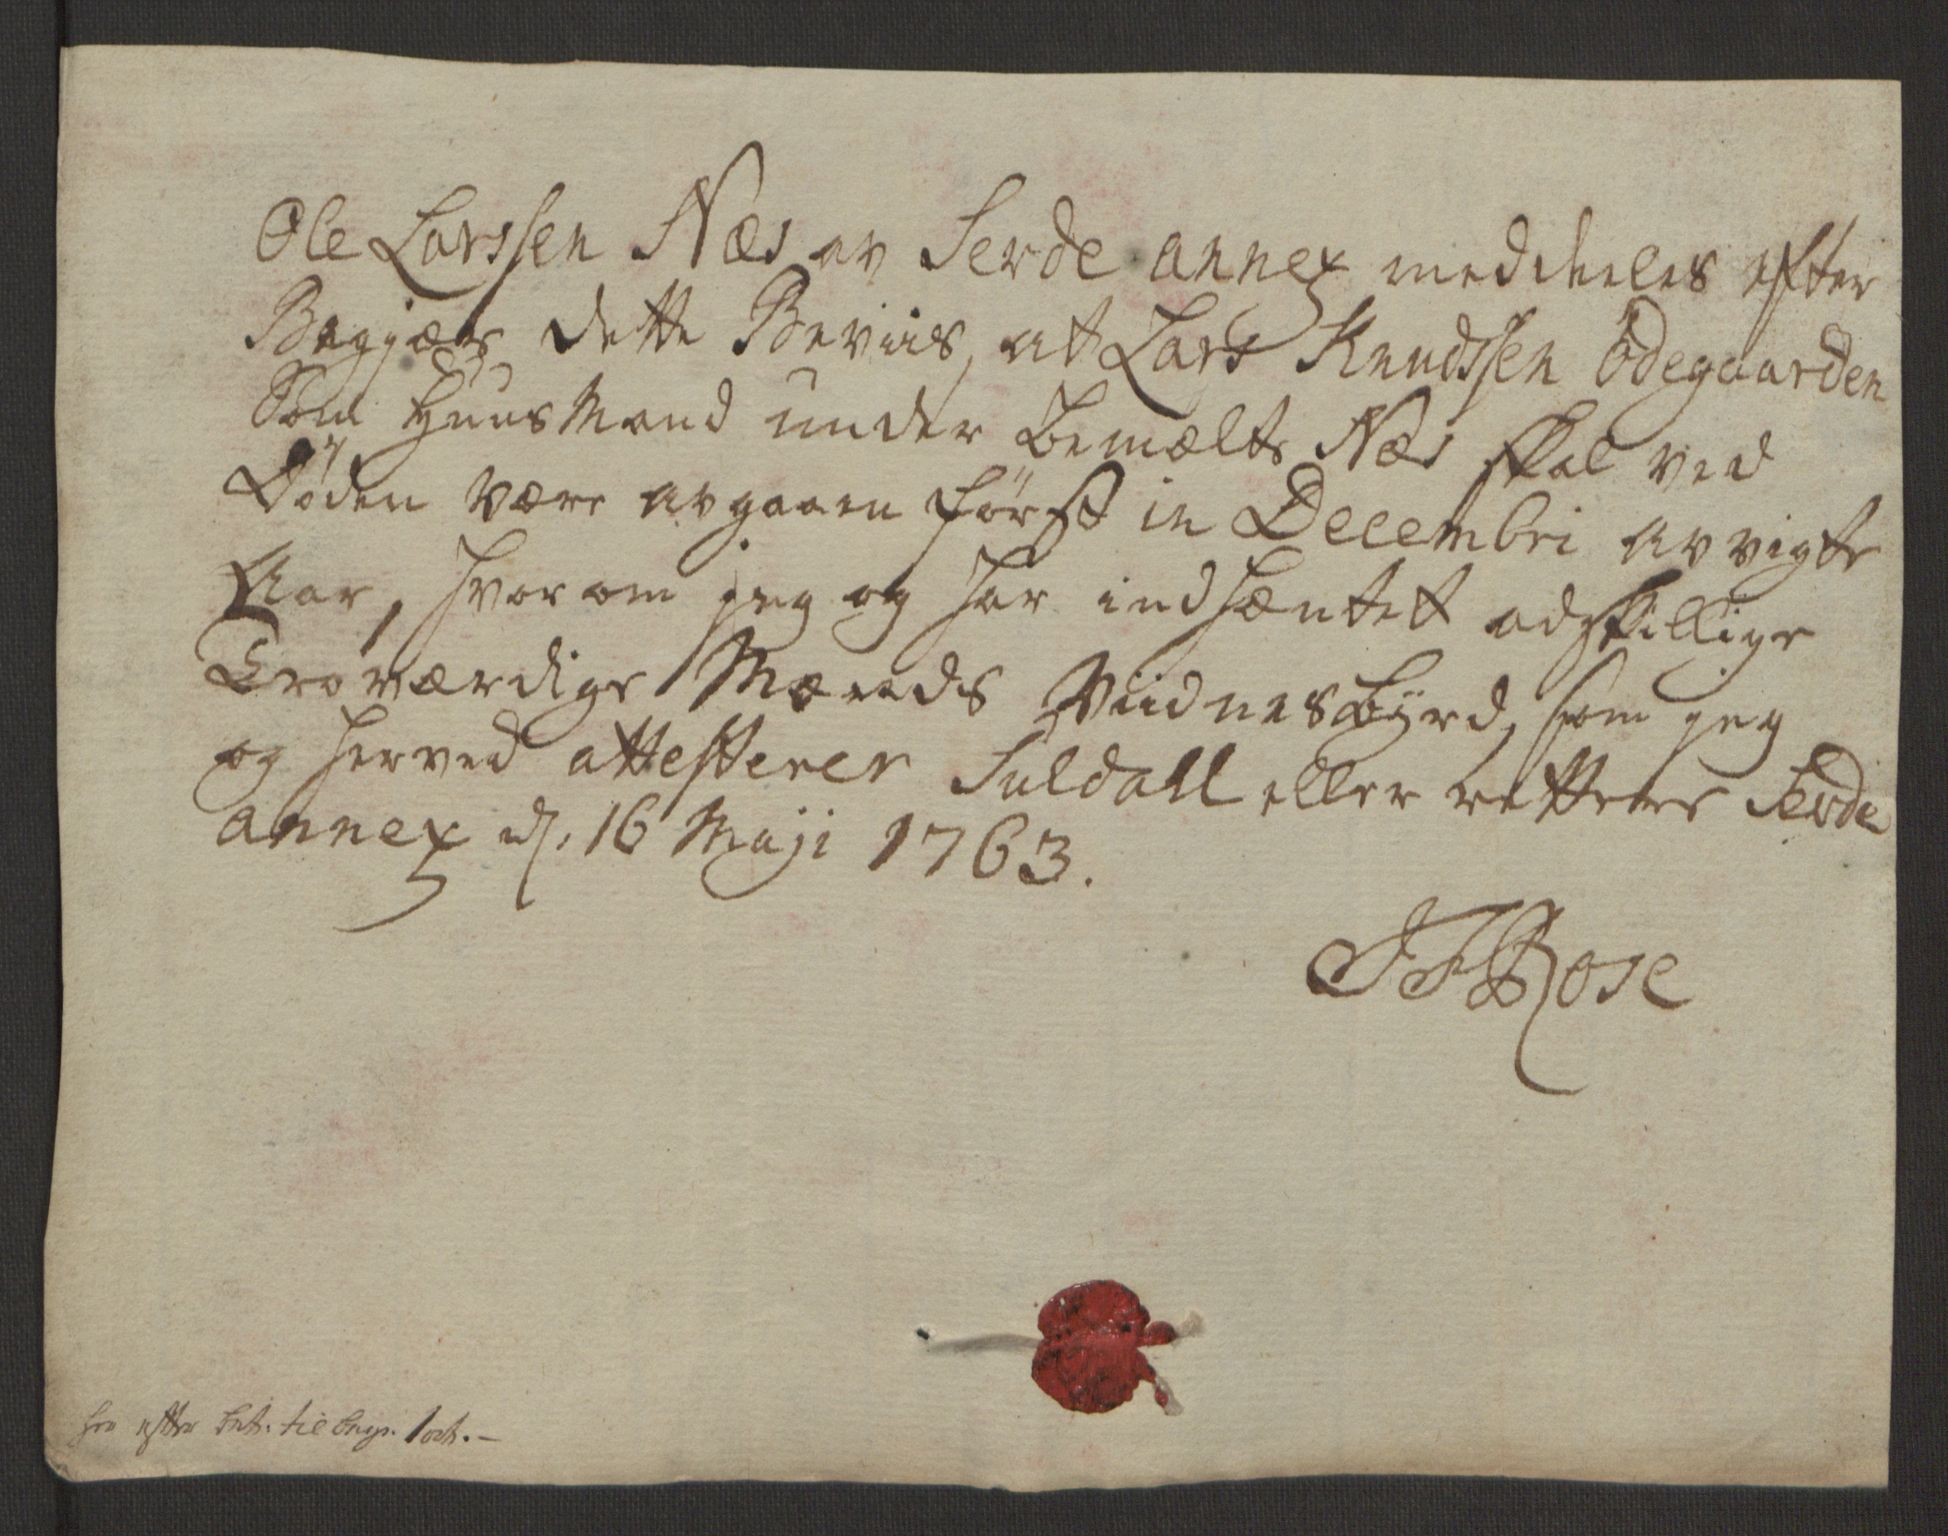 Ole Larssen Næs av Serde annex meddeeles efter
Begjær dette Beviis, at Lars Knudssen Ödegaarden
Som Huusmand under bemælte Næs skal ved
Döden være avgaaen först in Decembri avvigte
Aar, hvorom jeg og har indhæntet adskillige
Troværdige Mænds Viidnesbÿrd, som jeg
og herved attesterer Suldall eller rettere Serde
annex d. 16 Maji 1763.
JFRose
efter til